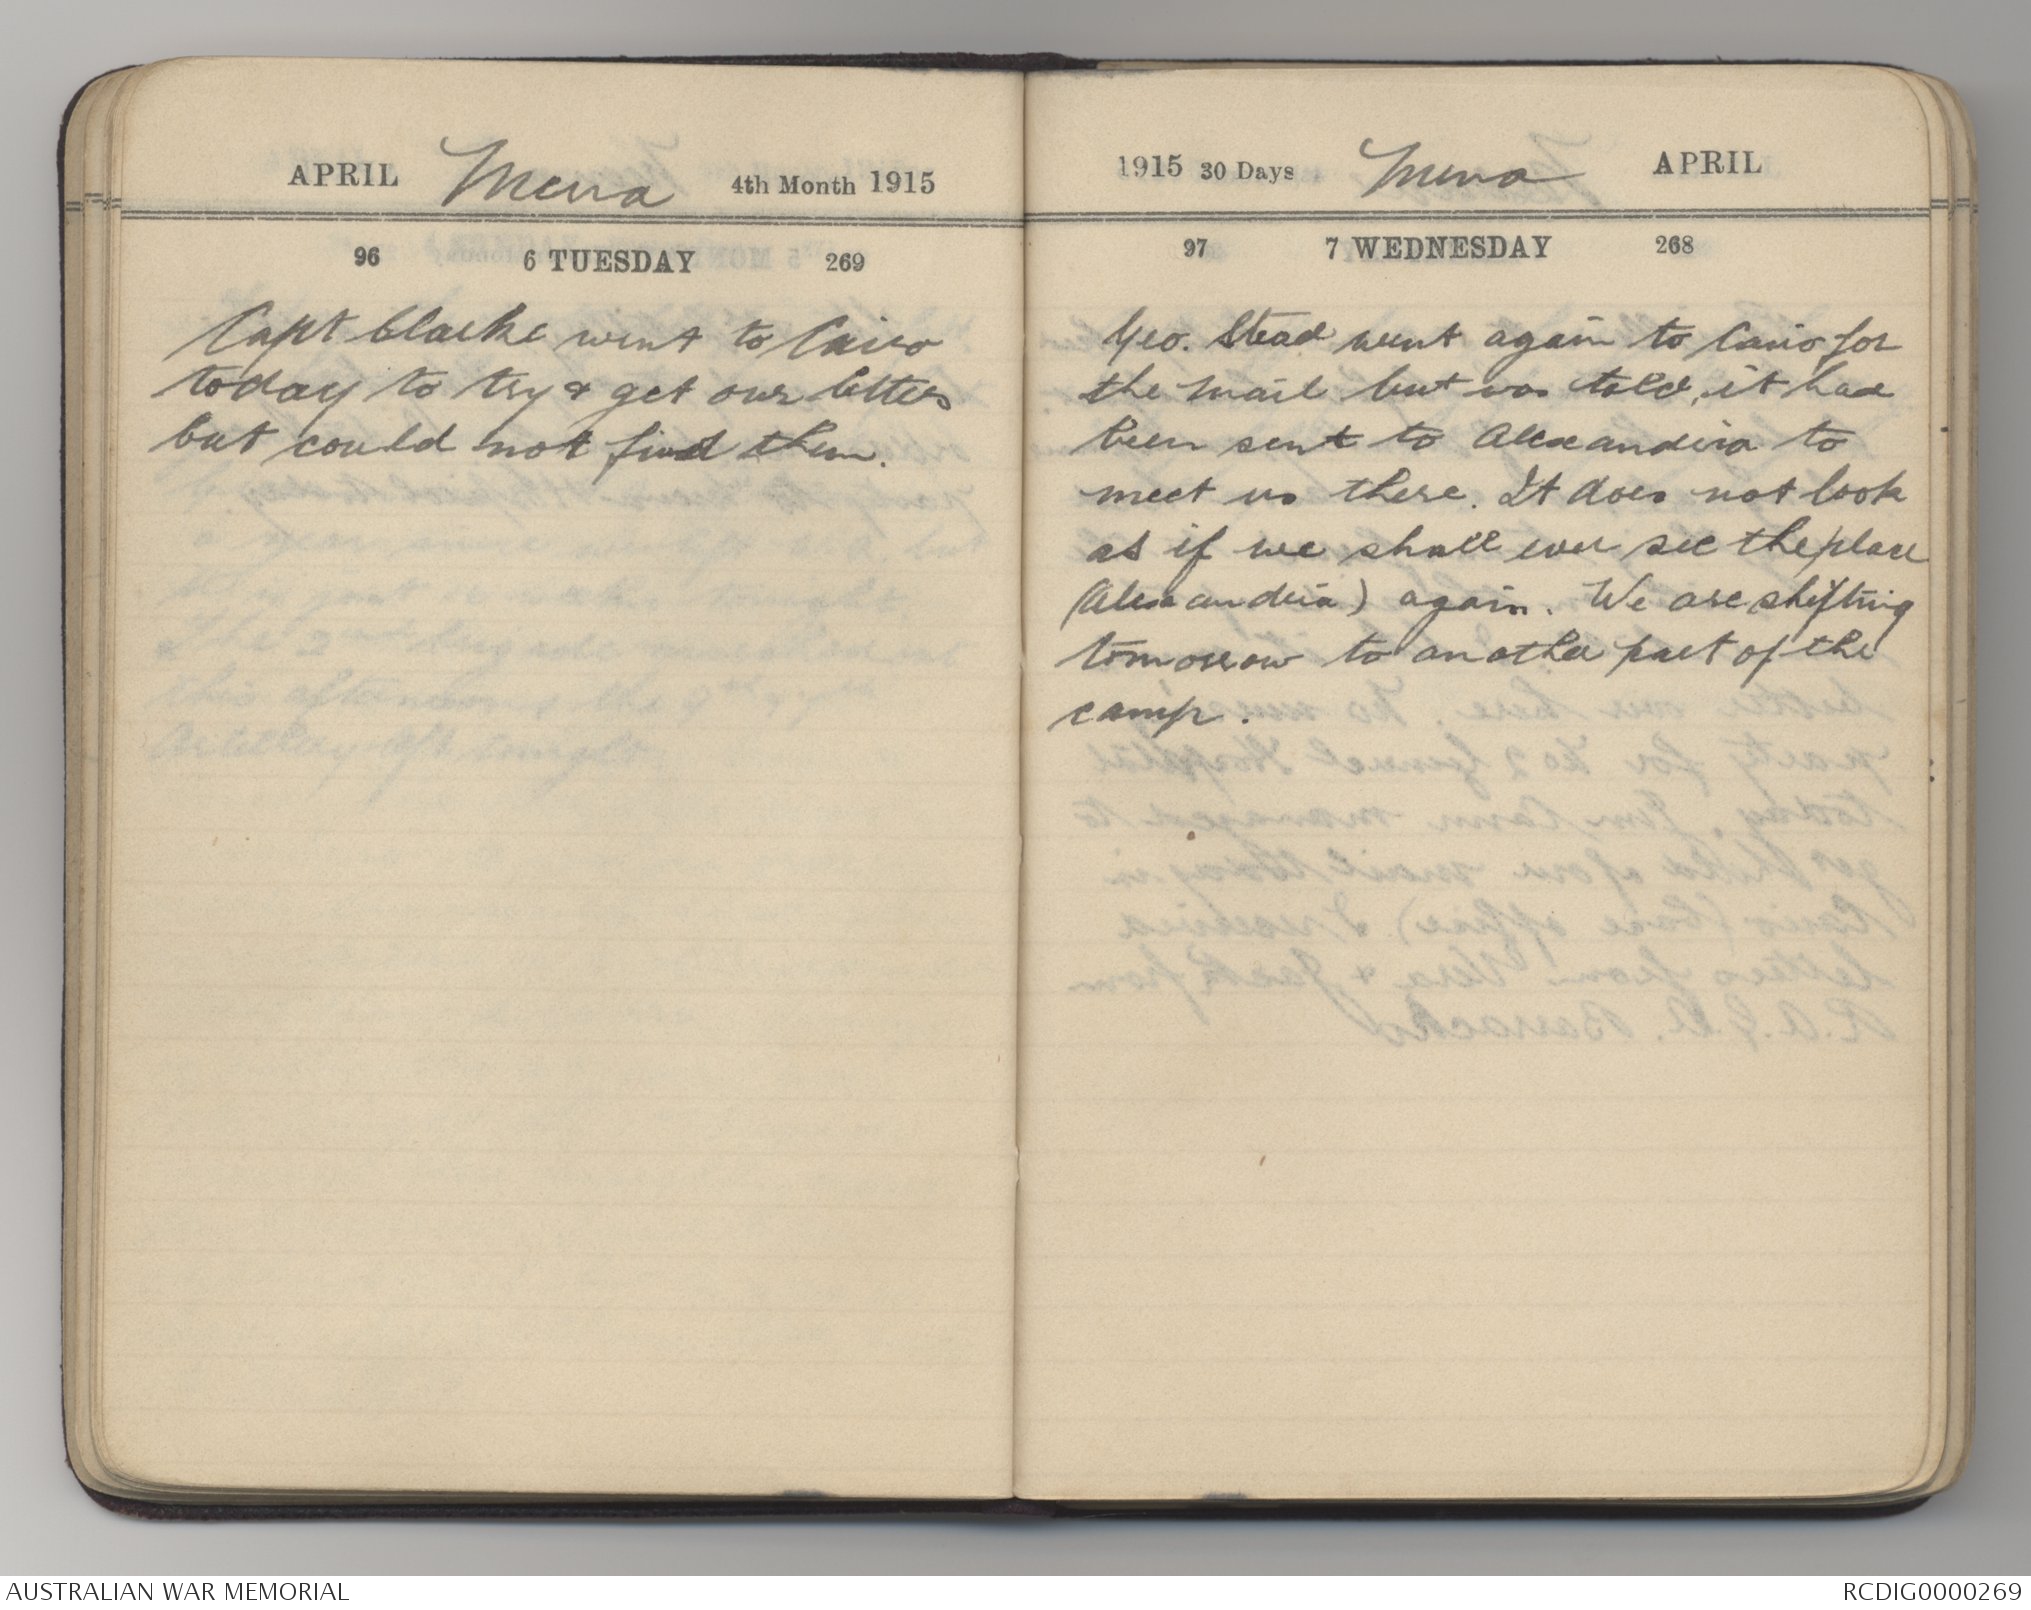 APRIL Mena 4th Month 1915
96 6 TUESDAY 269
Capt Clarke went to Cairo
today to try & get our letters
but could not find them.
1915 30 Days Mena APRIL
97 7 WEDNESDAY 268
Geo. Stead went again to Cairo for
the mail but was told, it had
been sent to Alexandria to
meet us there. It does not look
as if we shall ever see the place
(Alexandria) again. We are shifting
tomorrow to another part of the
camp.
AUSTRALIAN WAR MEMORIAL
RCDIG0000269